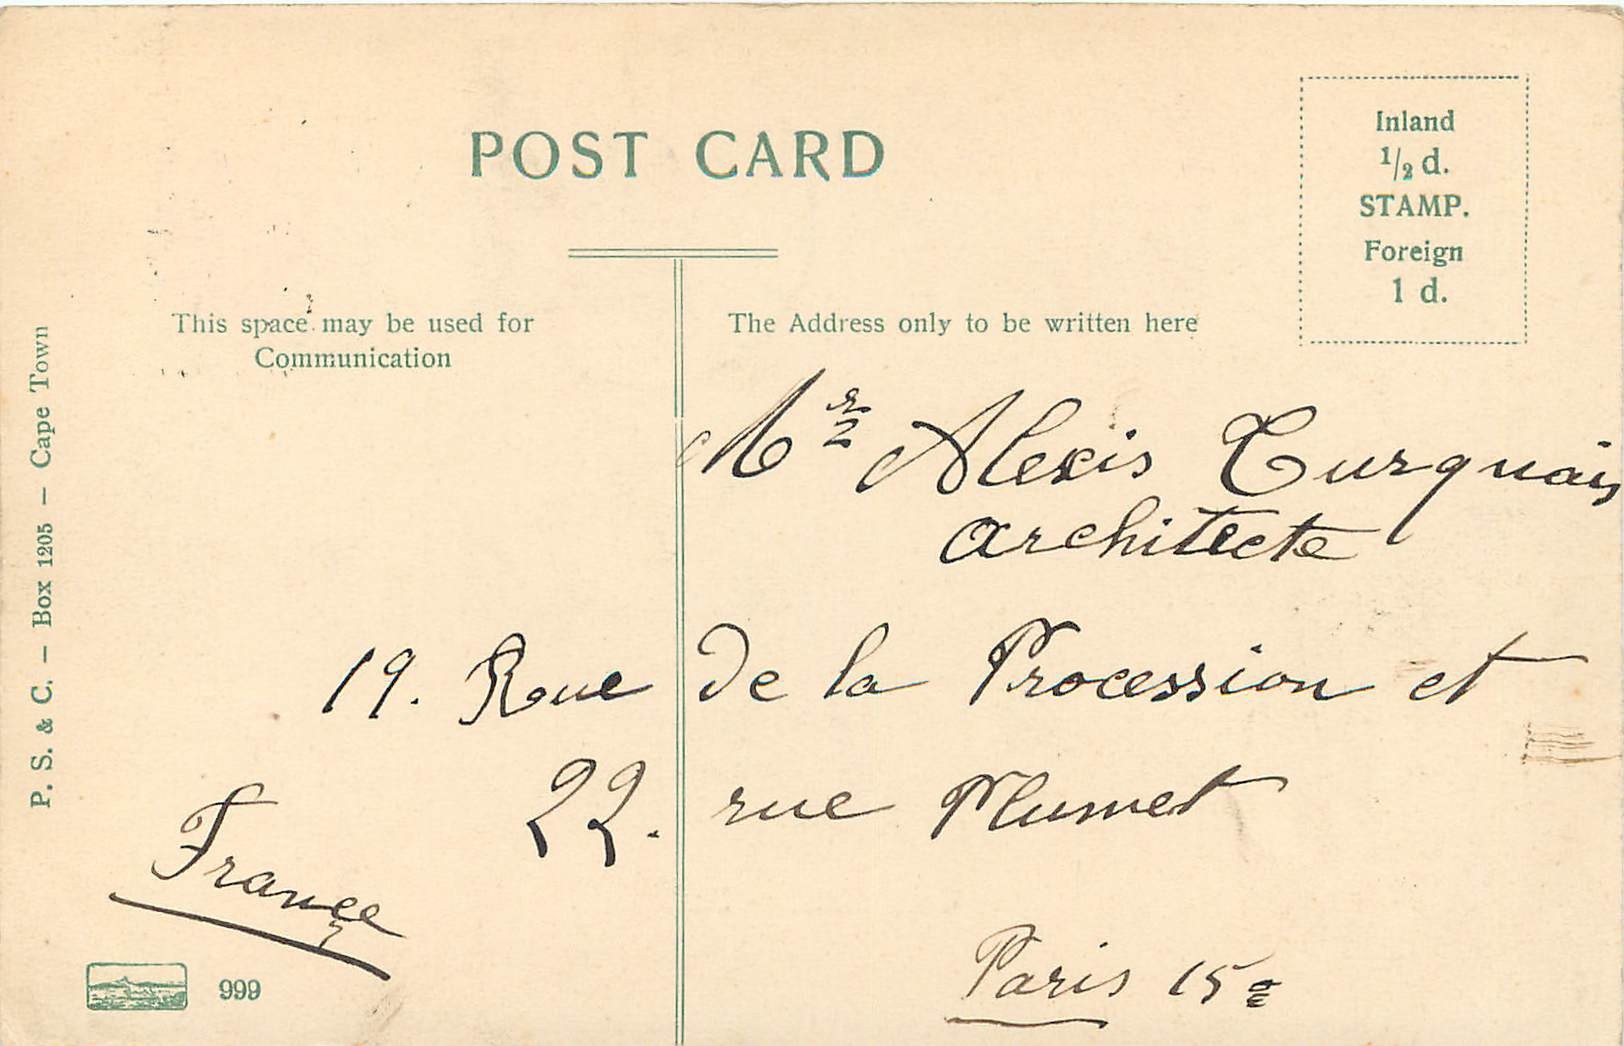 POST CARD
Inland
1/2 d.
STAMP.
Foreign
1 d.
This space may be used for
Communication
The Address only to be written here
P. S. & C. — Box 1205 — Cape Town
Mr Alexis Turquais
architecte
19. Rue de la Procession et
22. rue Plumet
France
Paris 15e
999